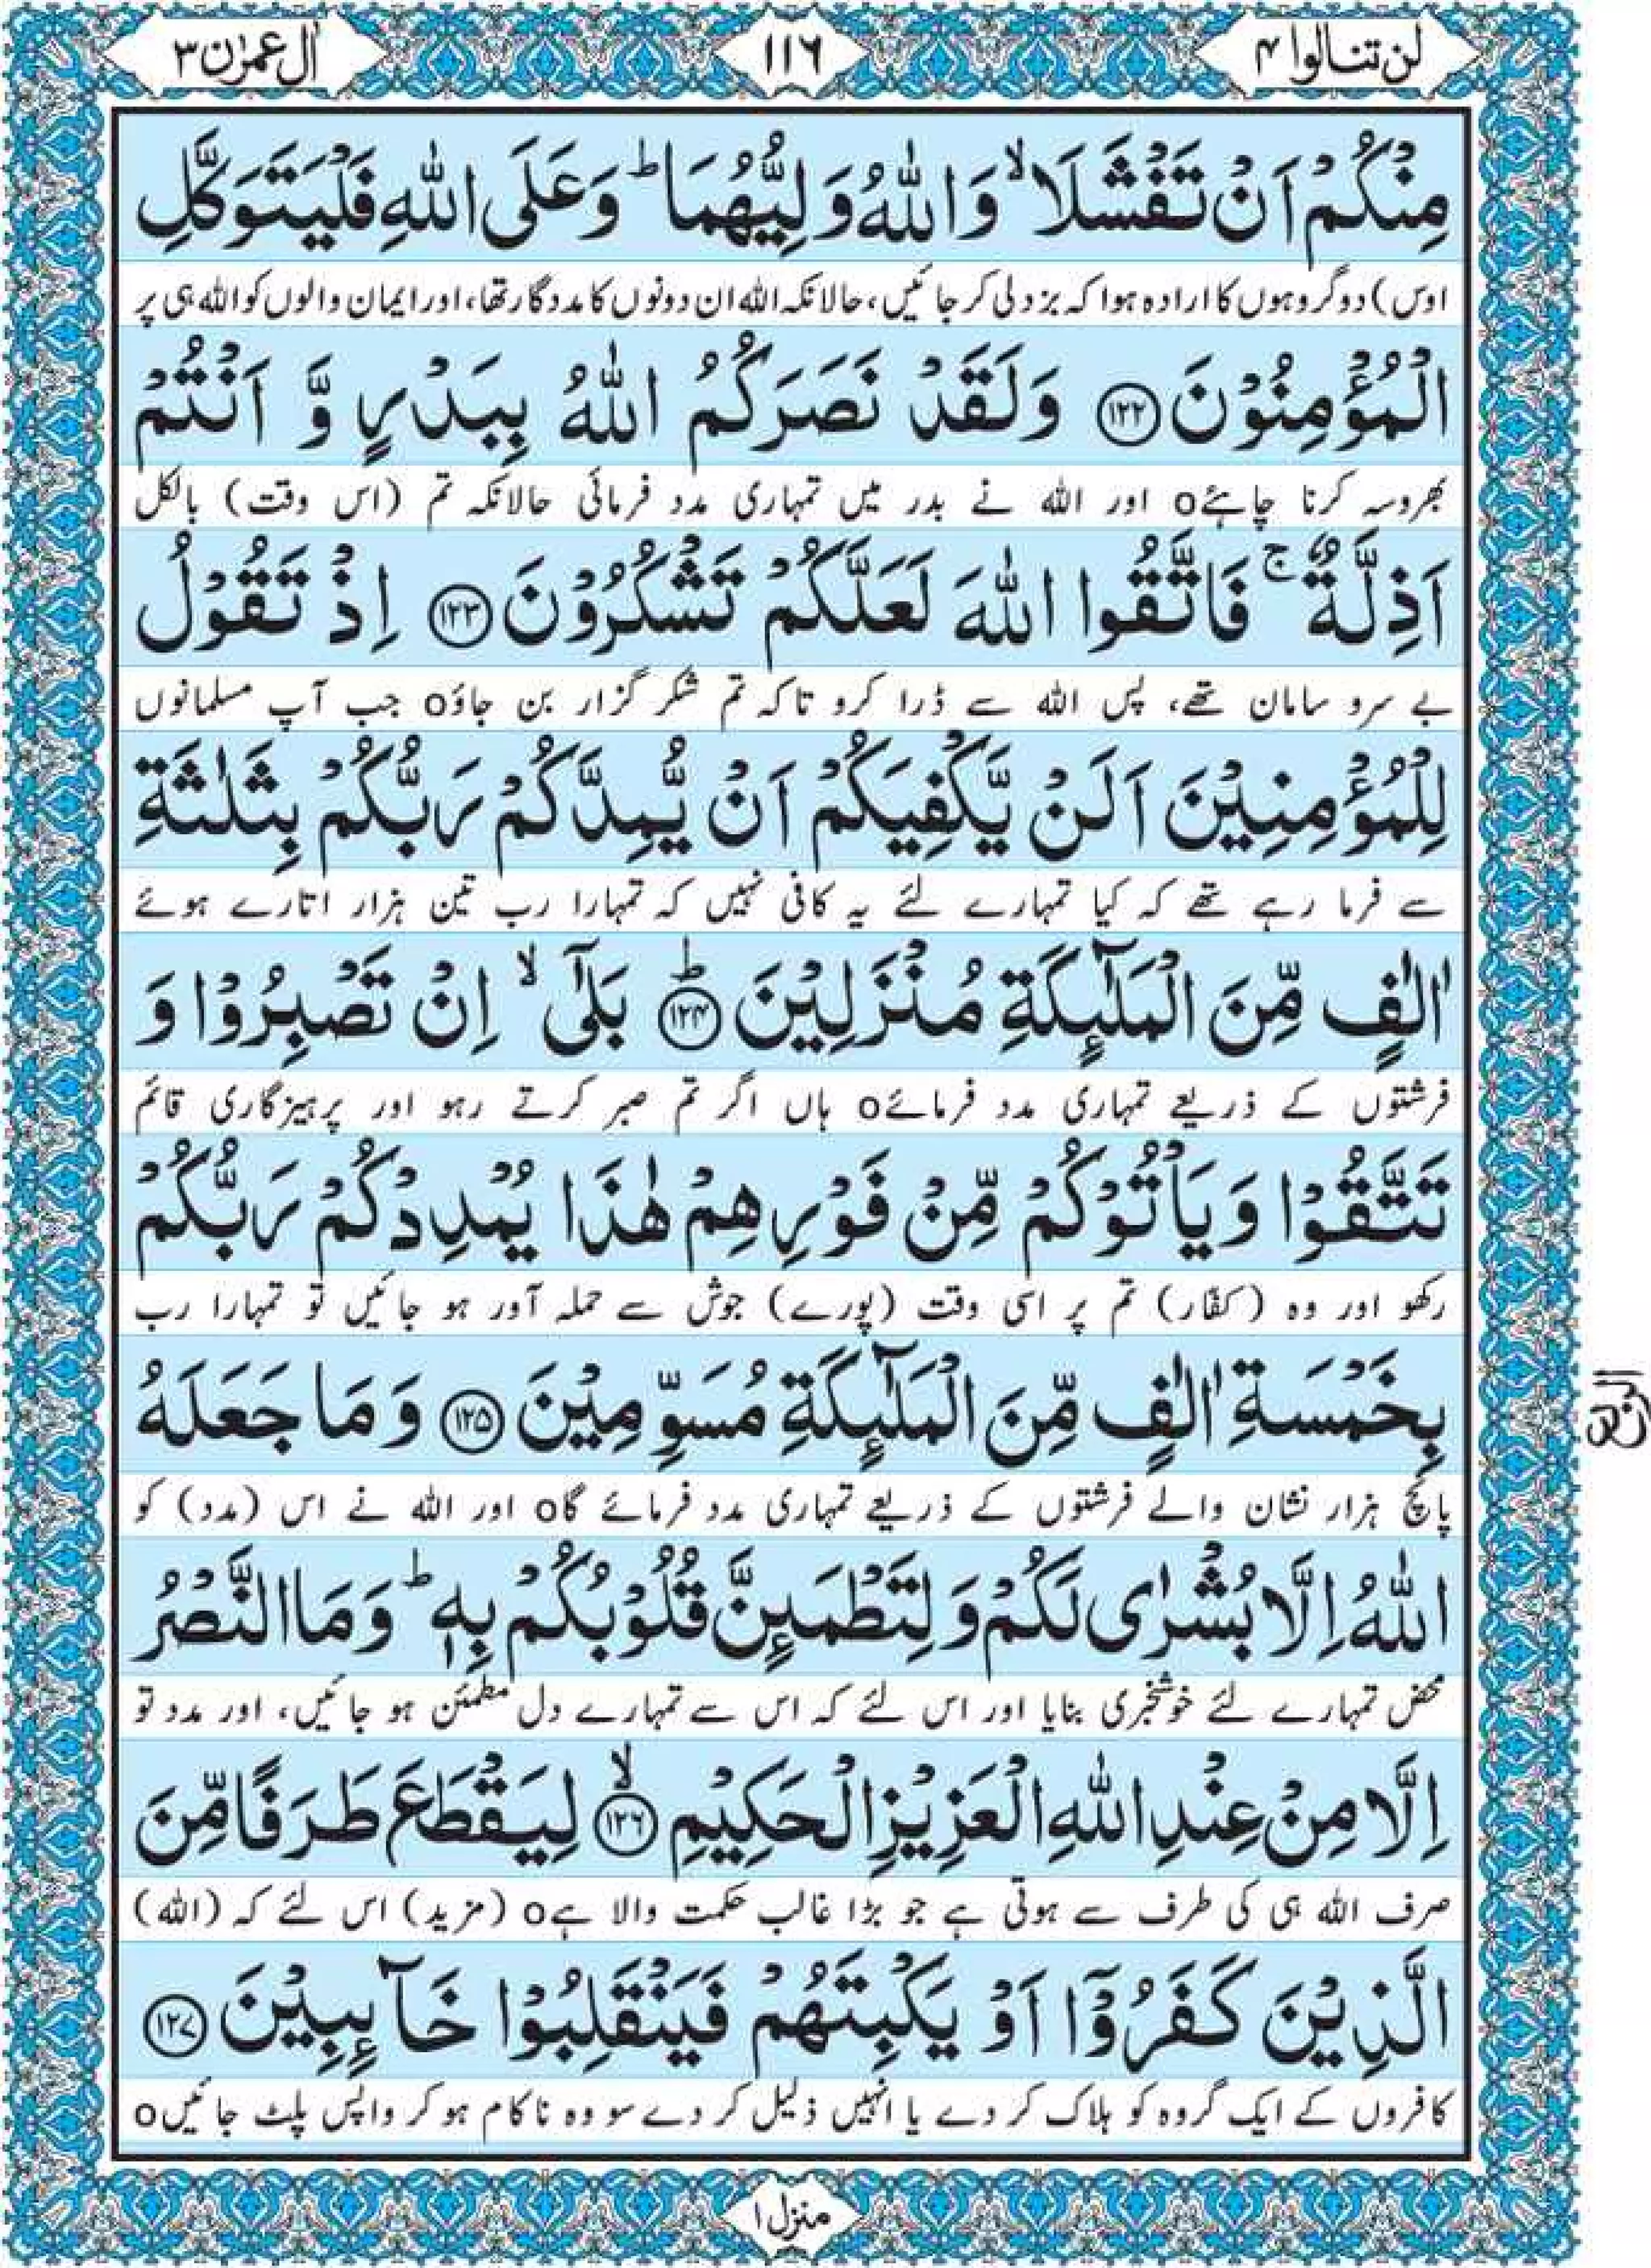 لن تنالوا ۴
۱۱۶
اٰل عمرٰن ۳
مِنْكُمْ اَنْ تَفْشَلَا ۙ وَاللّٰهُ وَلِیُّهُمَا ؕ وَعَلَی اللّٰهِ فَلْیَتَوَكَّلِ
اوس) دو گروہوں کا ارادہ ہوا کہ بزدلی کر جائیں، حالانکہ اللہ ان دونوں کا مددگار تھا، اور ایمان والوں کو اللہ ہی پر
الْمُؤْمِنُوْنَ ﴿۱۲۲﴾ وَلَقَدْ نَصَرَكُمُ اللّٰهُ بِبَدْرٍ وَّ اَنْتُمْ
بھروسہ کرنا چاہئےo اور اللہ نے بدر میں تمہاری مدد فرمائی حالانکہ تم (اس وقت) بالکل
اَذِلَّةٌ ۚ فَاتَّقُوا اللّٰهَ لَعَلَّكُمْ تَشْكُرُوْنَ ﴿۱۲۳﴾ اِذْ تَقُوْلُ
بے سرو سامان تھے، پس اللہ سے ڈرا کرو تاکہ تم شکر گزار بن جاؤo جب آپ مسلمانوں
لِلْمُؤْمِنِیْنَ اَلَنْ یَّكْفِیَكُمْ اَنْ یُّمِدَّكُمْ رَبُّكُمْ بِثَلٰثَةِ
سے فرما رہے تھے کہ کیا تمہارے لئے یہ کافی نہیں کہ تمہارا رب تین ہزار اتارے ہوئے
اٰلٰفٍ مِّنَ الْمَلٰٓئِكَةِ مُنْزَلِیْنَ ﴿۱۲۴﴾ؕ بَلٰۤی ۙ اِنْ تَصْبِرُوْا وَ
فرشتوں کے ذریعے تمہاری مدد فرمائےo ہاں اگر تم صبر کرتے رہو اور پرہیزگاری قائم
تَتَّقُوْا وَیَاْتُوْكُمْ مِّنْ فَوْرِهِمْ هٰذَا یُمْدِدْكُمْ رَبُّكُمْ
رکھو اور وہ (کفّار) تم پر اسی وقت (پورے) جوش سے حملہ آور ہو جائیں تو تمہارا رب
بِخَمْسَةِ اٰلٰفٍ مِّنَ الْمَلٰٓئِكَةِ مُسَوِّمِیْنَ ﴿۱۲۵﴾ وَمَا جَعَلَهُ
پانچ ہزار نشان والے فرشتوں کے ذریعے تمہاری مدد فرمائے گاo اور اللہ نے اس (مدد) کو
اللّٰهُ اِلَّا بُشْرٰی لَكُمْ وَلِتَطْمَئِنَّ قُلُوْبُكُمْ بِهٖ ؕ وَمَا النَّصْرُ
محض تمہارے لئے خوشخبری بنایا اور اس لئے کہ اس سے تمہارے دل مطمئن ہو جائیں، اور مدد تو
اِلَّا مِنْ عِنْدِ اللّٰهِ الْعَزِیْزِ الْحَكِیْمِ ﴿۱۲۶﴾ۙ لِیَقْطَعَ طَرَفًا مِّنَ
صرف اللہ ہی کی طرف سے ہوتی ہے جو بڑا غالب حکمت والا ہےo (مزید) اس لئے کہ (اللہ)
الَّذِیْنَ كَفَرُوْۤا اَوْ یَكْبِتَهُمْ فَیَنْقَلِبُوْا خَآئِبِیْنَ ﴿۱۲۷﴾
کافروں کے ایک گروہ کو ہلاک کر دے یا انہیں ذلیل کر دے سو وہ ناکام ہو کر واپس پلٹ جائیںo
الربع
منزل ۱